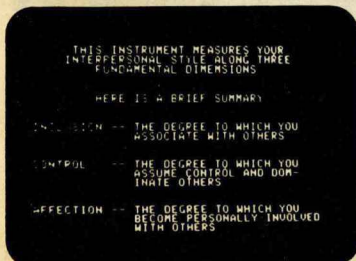 THIS INSTRUMENT MEASURES YOUR
INTERPERSONAL STYLE ALONG THREE
FUNDAMENTAL DIMENSIONS
HERE IS A BRIEF SUMMARY
INCLUSION -- THE DEGREE TO WHICH YOU
ASSOCIATE WITH OTHERS
CONTROL -- THE DEGREE TO WHICH YOU
ASSUME CONTROL AND DOM-
INATE OTHERS
AFFECTION -- THE DEGREE TO WHICH YOU
BECOME PERSONALLY INVOLVED
WITH OTHERS